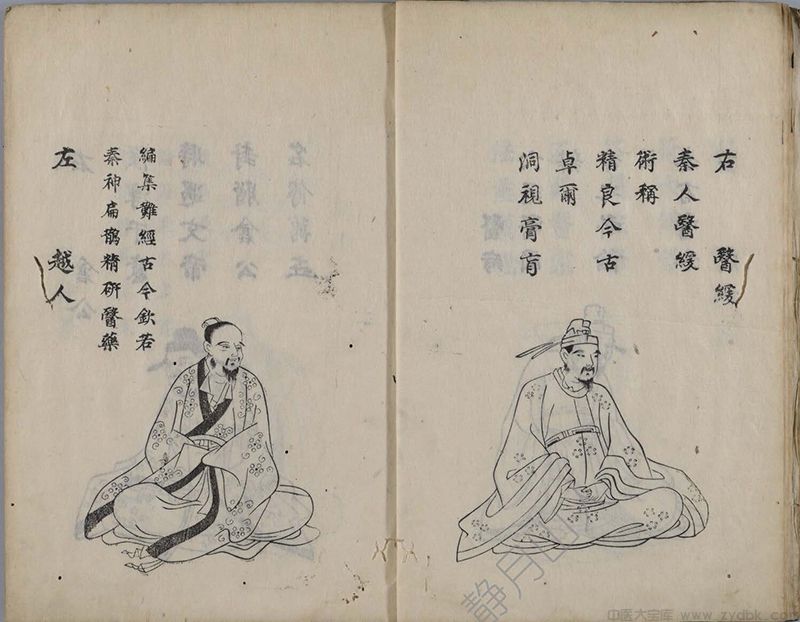 右 醫緩
秦人醫緩
術稱
精良今古
卓爾
洞視膏肓
左 越人
秦神扁鵲精研醫藥
編集難經古今欽若
静月
中医大宝库 www.zydbk.com